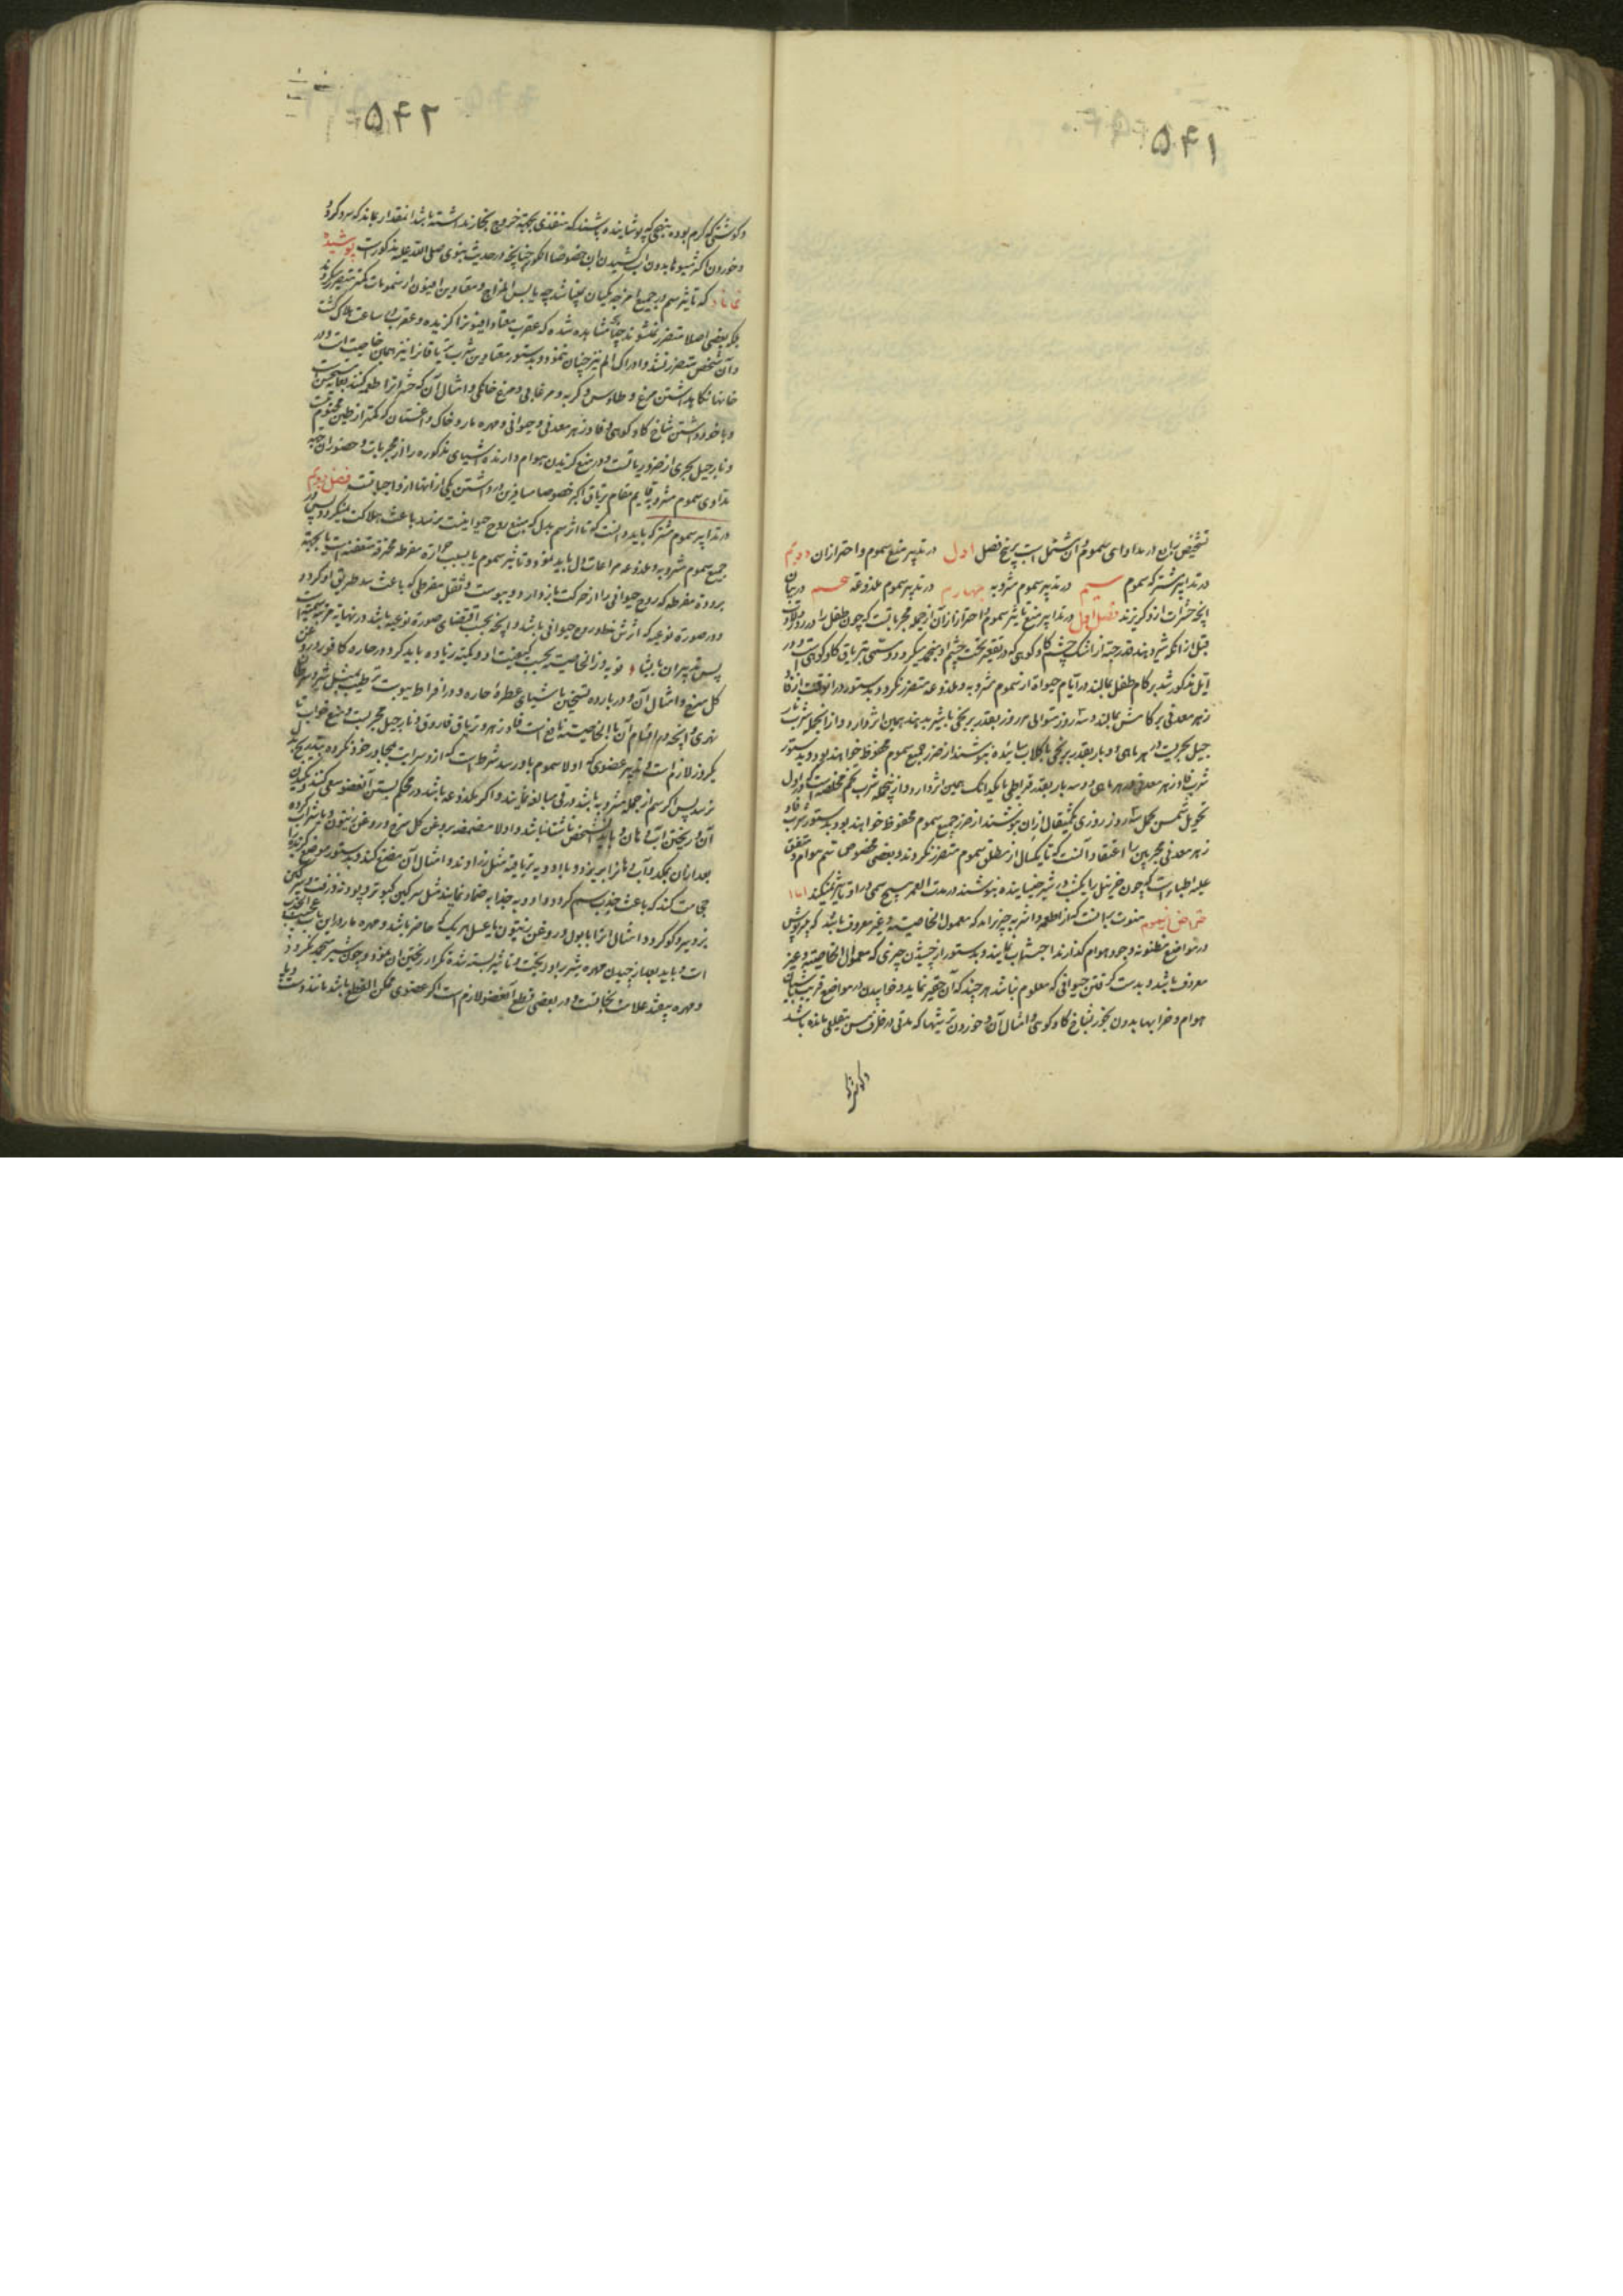 ۵۴۱
تشخیص بیان در مداوای سموم و آن مشتمل است بر پنج فصل اول در تدبیر منع سموم و احتراز ازان دویم
در تدابیر مشترکه سموم سیم در تدبیر سموم مشروبه چهارم در تدبیر سموم ملذوعه پنجم در بیان
آنچه حشرات ازو گریزند فصل اول در تدابیر منع تاثیر سموم و احتراز ازان از جمله مجرباتست که چون طفل را در روز ولادت
قبل از آنکه شیر دهند قدر حبه از اشک چشم گاو کوهی که در نقعیر تحت چشم او منجمد میگردد و مسمی بتریاق گاو کوهی است و در
ایل مذکور شد بر کام طفل بمالند در ایام حیوة از سموم مشروبه و ملذوعه متضرر نگردد و بدستور در انوقت از فاد
زهر معدنی بر کامش بمالند و سه روز متوالی هر روز بقدر برنجی با شیر بدهند همین اثر دارد و از انجمله شرب نار
جیل بحریست در هر ماهی دو بار بقدر برنجی با گلاب ساییده بنوشند از ضرر جمیع سموم محفوظ خواهند بود و بدستور
شرب فادزهر معدنی در هر ماهی دو سه بار بقدر قیراطی تا یکدانگ همین اثر دارد و از اینجمله شرب تخم مخلصه است که در اول
تحویل شمس بحمل سه روز روزی یکمثقال ازان بنوشند از ضرر جمیع سموم محفوظ خواهند بود و بدستور شرب فاد
زهر معدنی مجربین را اعتقاد آنست که تا یکسال از مطلق سموم متضرر نگردند و بعضی مخصوص سم هوام و متفق
علیه اطباء است که چون خربل را یکشب در شیر خیسانیده بنوشند در مدت العمر هیچ سمی در او تاثیر نمیکند اما
منوت بدانست که از اطعمه و اشربه چیزی را که مجهول الخاصیت و غیر معروف باشد که سرپوش
در مواضع مظنونه وجود هوام گذارند اجتناب نمایند و بدستور از چشیدن چیزی که مجهول الخاصیة و غیر
معروف باشد و بدست گرفتن حیوانی که معلوم نباشد هر چند که آن حقیر نماید و خوابیدن در مواضع قریب
هوام و خرابها بدون بخور شاخ گاو کوهی و امثال آن و خوردن ترشیها که مدتی در ظرف مس بیقلعی مانده باشد
۵۴۲
و گوشتی که گرم بوده بنهجی که پوشانیده باشند که منفذی بجهة خروج بخار نداشته باشد انقدار بماند که سرد گردد
و خوردن اکثر میوها بدون آب کشیدن ان خصوصا انگور چنانچه در حدیث نبوی صلی الله علیه مذکور است پوشیده
نماناد که تاثیر سم در جمیع امزجه یکسان نمیباشد چه یابس المزاج و معتادین افیون از سمومات کمتر متضرر میگردند
بلکه بعضی اصلا متضرر نمیشوند چنانچه مشاهده شده که عقرب معتاد افیونرا گزیده و عقرب در ساعت هلاک گشت
و آن شخص متضرر نشد و ادراک الم نیز چنان ننمود و بدستور معتادین شرب تریاقانرا نیز همان خاصیت است و در
خانها نگاهداشتن مرغ و طاوس و گربه و مرغابی و مرغ خانگی و امثال آن که حشراترا طعمه کنند
و با خود داشتن شاخ گاو کوهی و فادزهر معدنی و حیوانی و مهره مار و خاک داغستان که کمتر از طین مختوم نیست
و نارجیل بحری از ضروریاتست و در منع گزیدن هوام دارنده اشیای مذکوره را از مجربات و حضور ان بجهة
تداوی سموم مشروبه قایم مقام تریاق اکبر خصوصا مسافرین در داشتن یکی از انها از واجباتست فصل دویم
در تدابیر سموم مشترکه باید دانست که تا اثر سم بدل که منبع روح حیوانیست نرسد باعث هلاکت نمیگردد پس در
جمیع سموم مشروبه و ملذوعه مراعات دل باید نمود و تاثیر سموم یا بسبب حرارة مفرطه محرقه متعفنه است یا بجهة
برودة مفرطه که روح حیوانی را از حرکت بازدارد و یبوست و ثقل مفرطی که باعث سد طریق او گردد
و در صورة نوعیه که اثرش بطور روح حیوانی باشد و آنچه بحسب اقتضای صورة نوعیه باشد در نهایة مرتبه سمیت است
گل سرخ و امثال آن و در بارده تسخین باشیای عطرۀ حاره و در افراط یبوست ترطیب بمثل شیر و سرطان
نهری و آنچه در اقسام آن بالخاصیة نافع است فادزهر و تریاق فاروق و نارجیل بحریست و منع خواب تا
یکروز لازم است و تدبیر عضوی که اولا سموم باو رسد شرط است که از و سرایت بمجاور خود نکرده بتدریج بدل
نرسد پس اگر سم از جمله مشروبه باشد در قی مبالغه نمایند و اگر ملذوعه باشد در محکم بستن آنعضو سعی کنند و مکیدن
آن و ریختن آب دهان و باید الشخص ناشتا نباشد و اولا مضمضه بروغن گل سرخ و روغن زیتون یا شراب کرده
بعد ازان بمکد و آب دهانرا بریزد و با ادویه تریاقیه مثل زراوند و امثال آن مضغ کند و بدستور موضع گزیده را
حجامت کنند که باعث جذب سم گردد و ادویه جذابه ضماد نمایند مثل سرگین کبوتر و پودنه و زفت و سرگین
بز و سیر و گوگرد و امثال انرا با بول و روغن زیتون یا عسل هر یک که حاضر باشد و مهره مار در این باب
است و باید بعد از چیدن مهره شیر را و ریخت و تا شیر بسته شده تکرار ریختن ان نمود و چون شیر منجمد نگردد
و مهره بیفتد علامت نجاتست و در بعضی قطع آنعضو لازم است اگر عضوی ممکن القطع باشد مانند دست